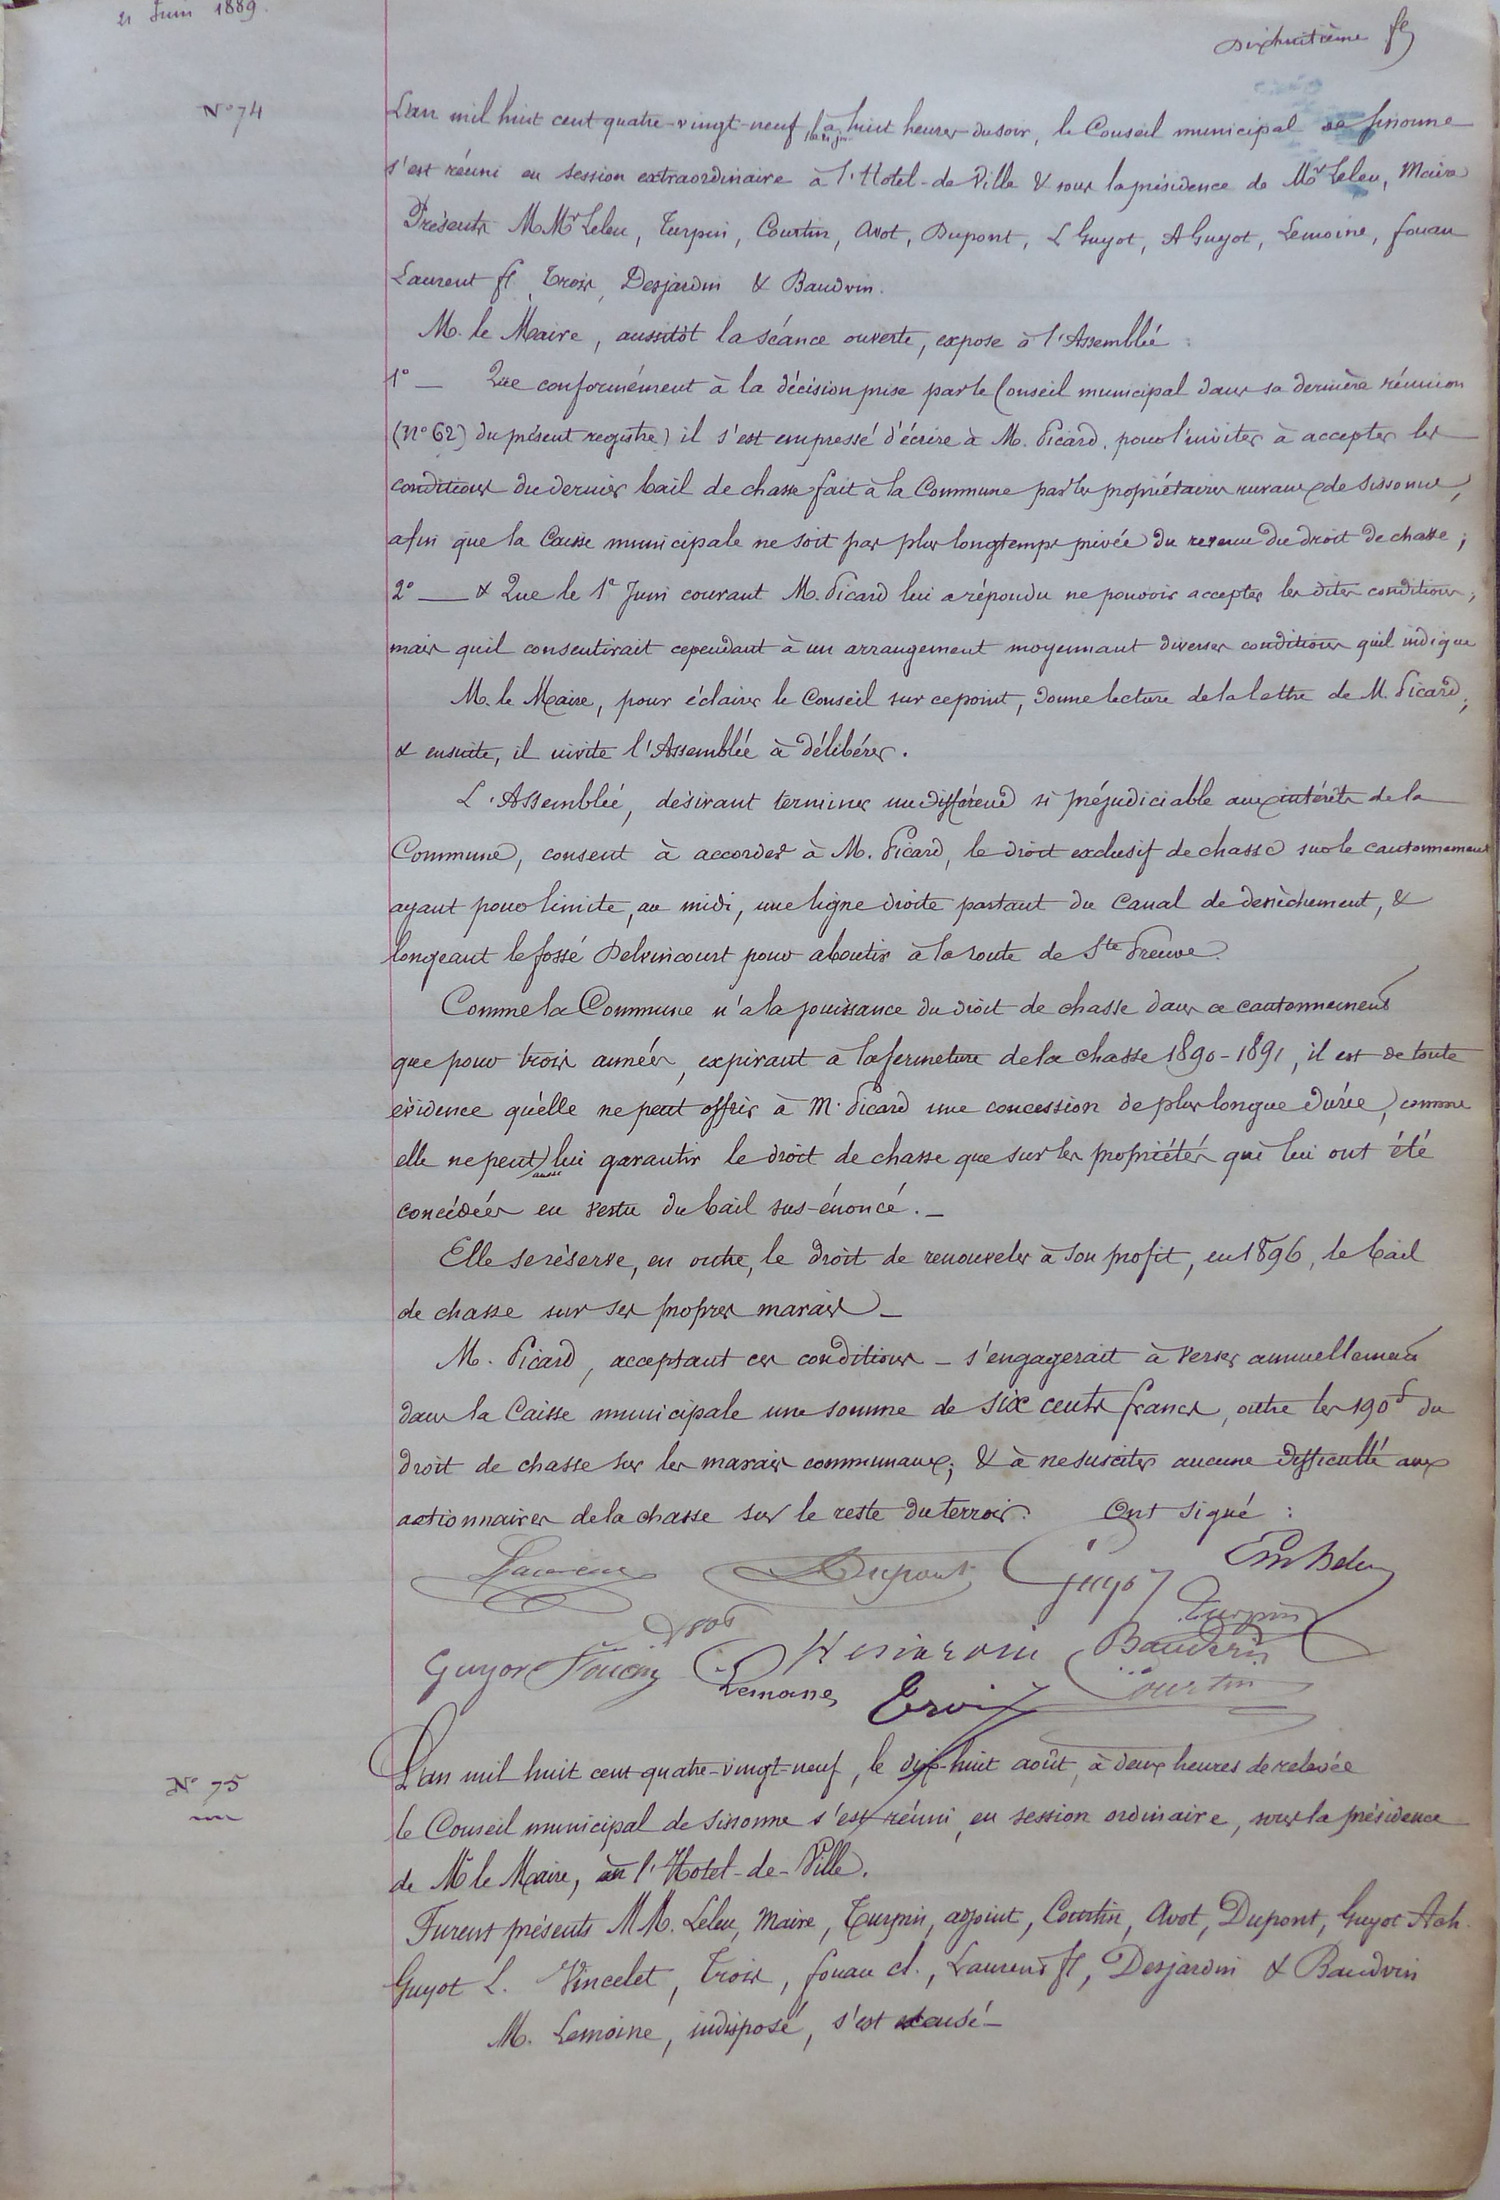 21 Juin 1889.
Dixhuitième ft
N° 74
L'an mil huit cent quatre-vingt-neuf, à huit heures du soir, le Conseil municipal de Sissonne
s'est réuni en session extraordinaire à l'Hotel-de Ville & sous la présidence de Mr Leleu, Maire
Présents MMrs Leleu, Turpin, Courtin, Avot, Dupont, L Guyot, A Guyot, Lemoine, fouan
Laurent ft, Trois, Desjardin & Baudvin.
M. le Maire, aussitôt la séance ouverte, expose à l'Assemblée :
1° — Que conformément à la décision prise par le Conseil municipal dans sa dernière réunion
(N° 62) du présent registre) il s'est empressé d'écrire à M. Picard, pour l'inviter à accepter les
conditions du dernier bail de chasse fait à la Commune par les propriétaires ruraux de Sissonne,
afin que la Caisse municipale ne soit pas plus longtemps privée du revenu du droit de chasse ;
2° — & Que le 1e Juin courant M. Picard lui a répondu ne pouvoir accepter les dites conditions,
mais quil consentirait cependant à un arrangement moyennant diverses conditions quil indique
M. le Maire, pour éclairer le Conseil sur ce point, donne lecture de la lettre de M. Picard,
& ensuite, il invite l'Assemblée à délibérer.
L'Assemblée, désirant terminer un différend si préjudiciable aux intérêts de la
Commune, consent à accorder à M. Picard, le droit exclusif de chasse sur le cantonnement
ayant pour limite, au midi, une ligne droite partant du Canal de dessèchement, &
longeant le fossé Delvincourt pour aboutir à la route de Ste Preuve.
Comme la Commune n'a la jouissance du droit de chasse dans ce cantonnement
que pour trois années, expirant à la fermeture de la chasse 1890-1891, il est de toute
évidence qu'elle ne peut offrir à M. Picard une concession de plus longue durée, comme
elle ne peut aussi lui garantir le droit de chasse que sur les propriétés qui lui ont été
concédées en vertu du bail sus-énoncé. —
Elle se réserve, en outre, le droit de renouveler à son profit, en 1896, le bail
de chasse sur ses propres marais —
M. Picard, acceptant ces conditions — s'engagerait à verser annuellement
dans la Caisse municipale une somme de six cents francs, outre les 190f du
droit de chasse sur les marais communaux ; & à ne susciter aucune difficulté aux
actionnaires de la chasse sur le reste du terroir. Ont signé :
Laurent Dupont Guyot Em Leleu
Avot Turpin
Guyot Fouan Desjardin Baudvin
Lemoine Trois Courtin
N° 75
L'an mil huit cent quatre-vingt-neuf, le dix-huit août, à deux heures de relevée
le Conseil municipal de Sissonne s'est réuni, en session ordinaire, sous la présidence
de M. le Maire, à l'Hotel-de-Ville.
Furent présents MM. Leleu, Maire, Turpin, adjoint, Courtin, Avot, Dupont, Guyot Ach.
Guyot L. Vincelet, Trois, fouan cl., Laurent ft, Desjardin & Baudvin
M. Lemoine, indisposé, s'est excusé —